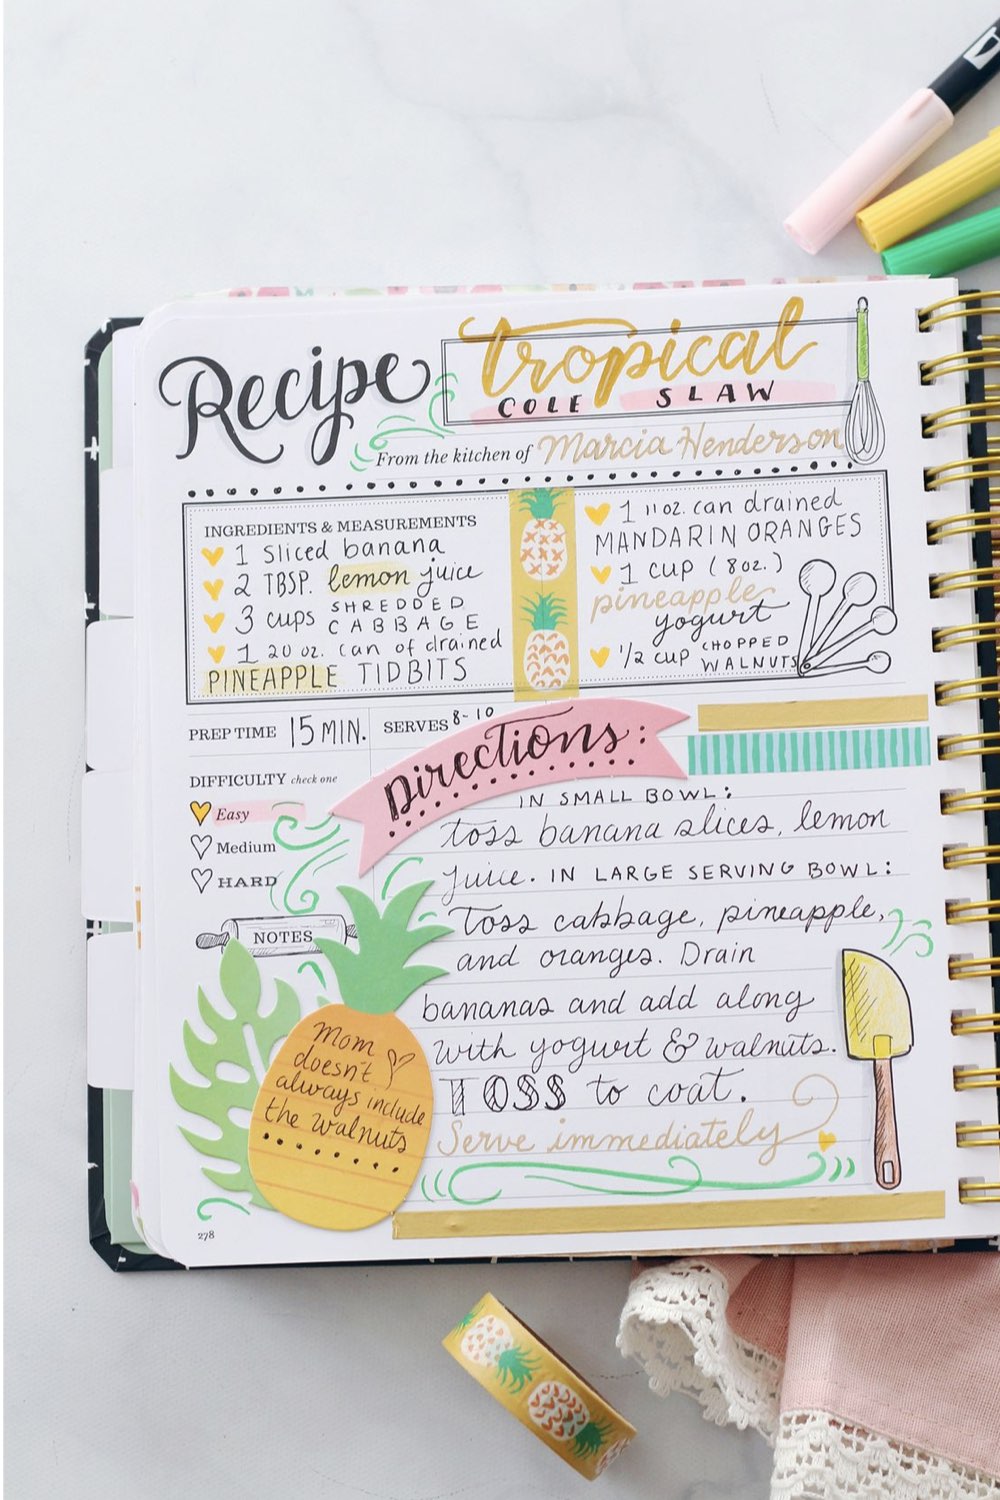 Recipe
tropical
COLE SLAW
From the kitchen of Marcia Henderson
INGREDIENTS & MEASUREMENTS
1 sliced banana
2 TBSP. lemon juice
3 cups SHREDDED CABBAGE
1 20 oz. can of drained
PINEAPPLE TIDBITS
1 11 oz. can drained
MANDARIN ORANGES
1 cup (8oz.)
pineapple
yogurt
1/2 cup CHOPPED WALNUTS
PREP TIME 15 MIN.
SERVES 8-10
DIFFICULTY check one
Easy
Medium
HARD
NOTES
Mom
doesn't
always include
the walnuts
Directions:
IN SMALL BOWL:
toss banana slices, lemon
juice. IN LARGE SERVING BOWL:
Toss cabbage, pineapple,
and oranges. Drain
bananas and add along
with yogurt & walnuts.
TOSS to coat.
Serve immediately
278